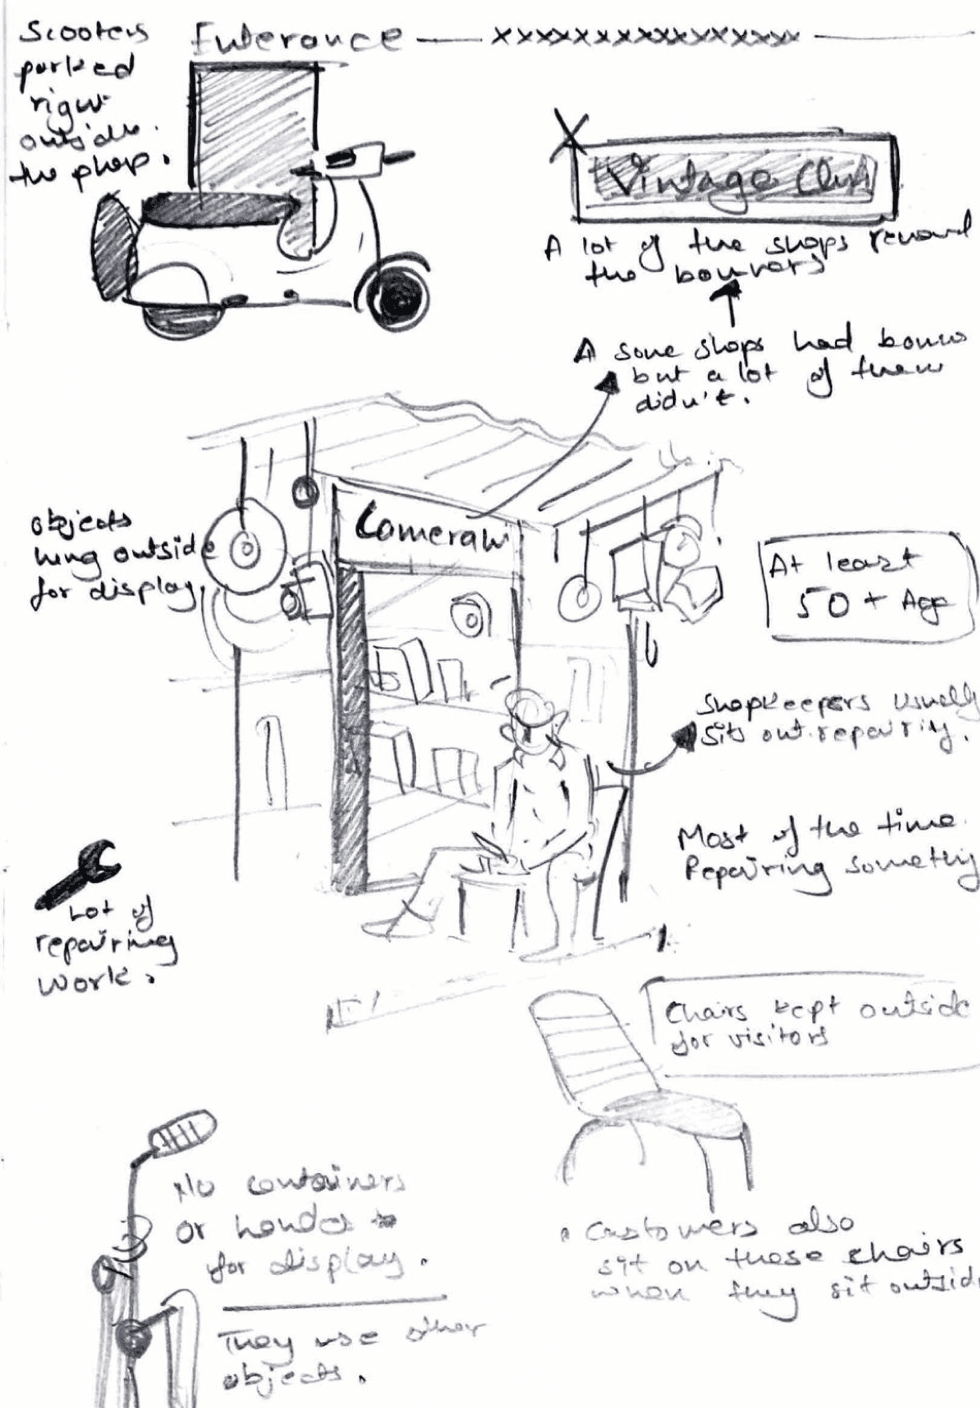 Scooters
parked
right
outside
the shop.
Enterance
xxxxxxxxxxxxxxxx
Vintage
A lot of the shops
the
A some shops had
but a lot of them
didn't.
objects
hung outside
for display
Cameraw
At least
50 + Age
Shopkeepers usually
sits out repairing.
Most of the time
Repairing somethig
Lot of
repairing
work.
Chairs kept outside
for visitors
No containers
or
for display.
They use other
objects.
Customers also
sit on these chairs
when they sit outside